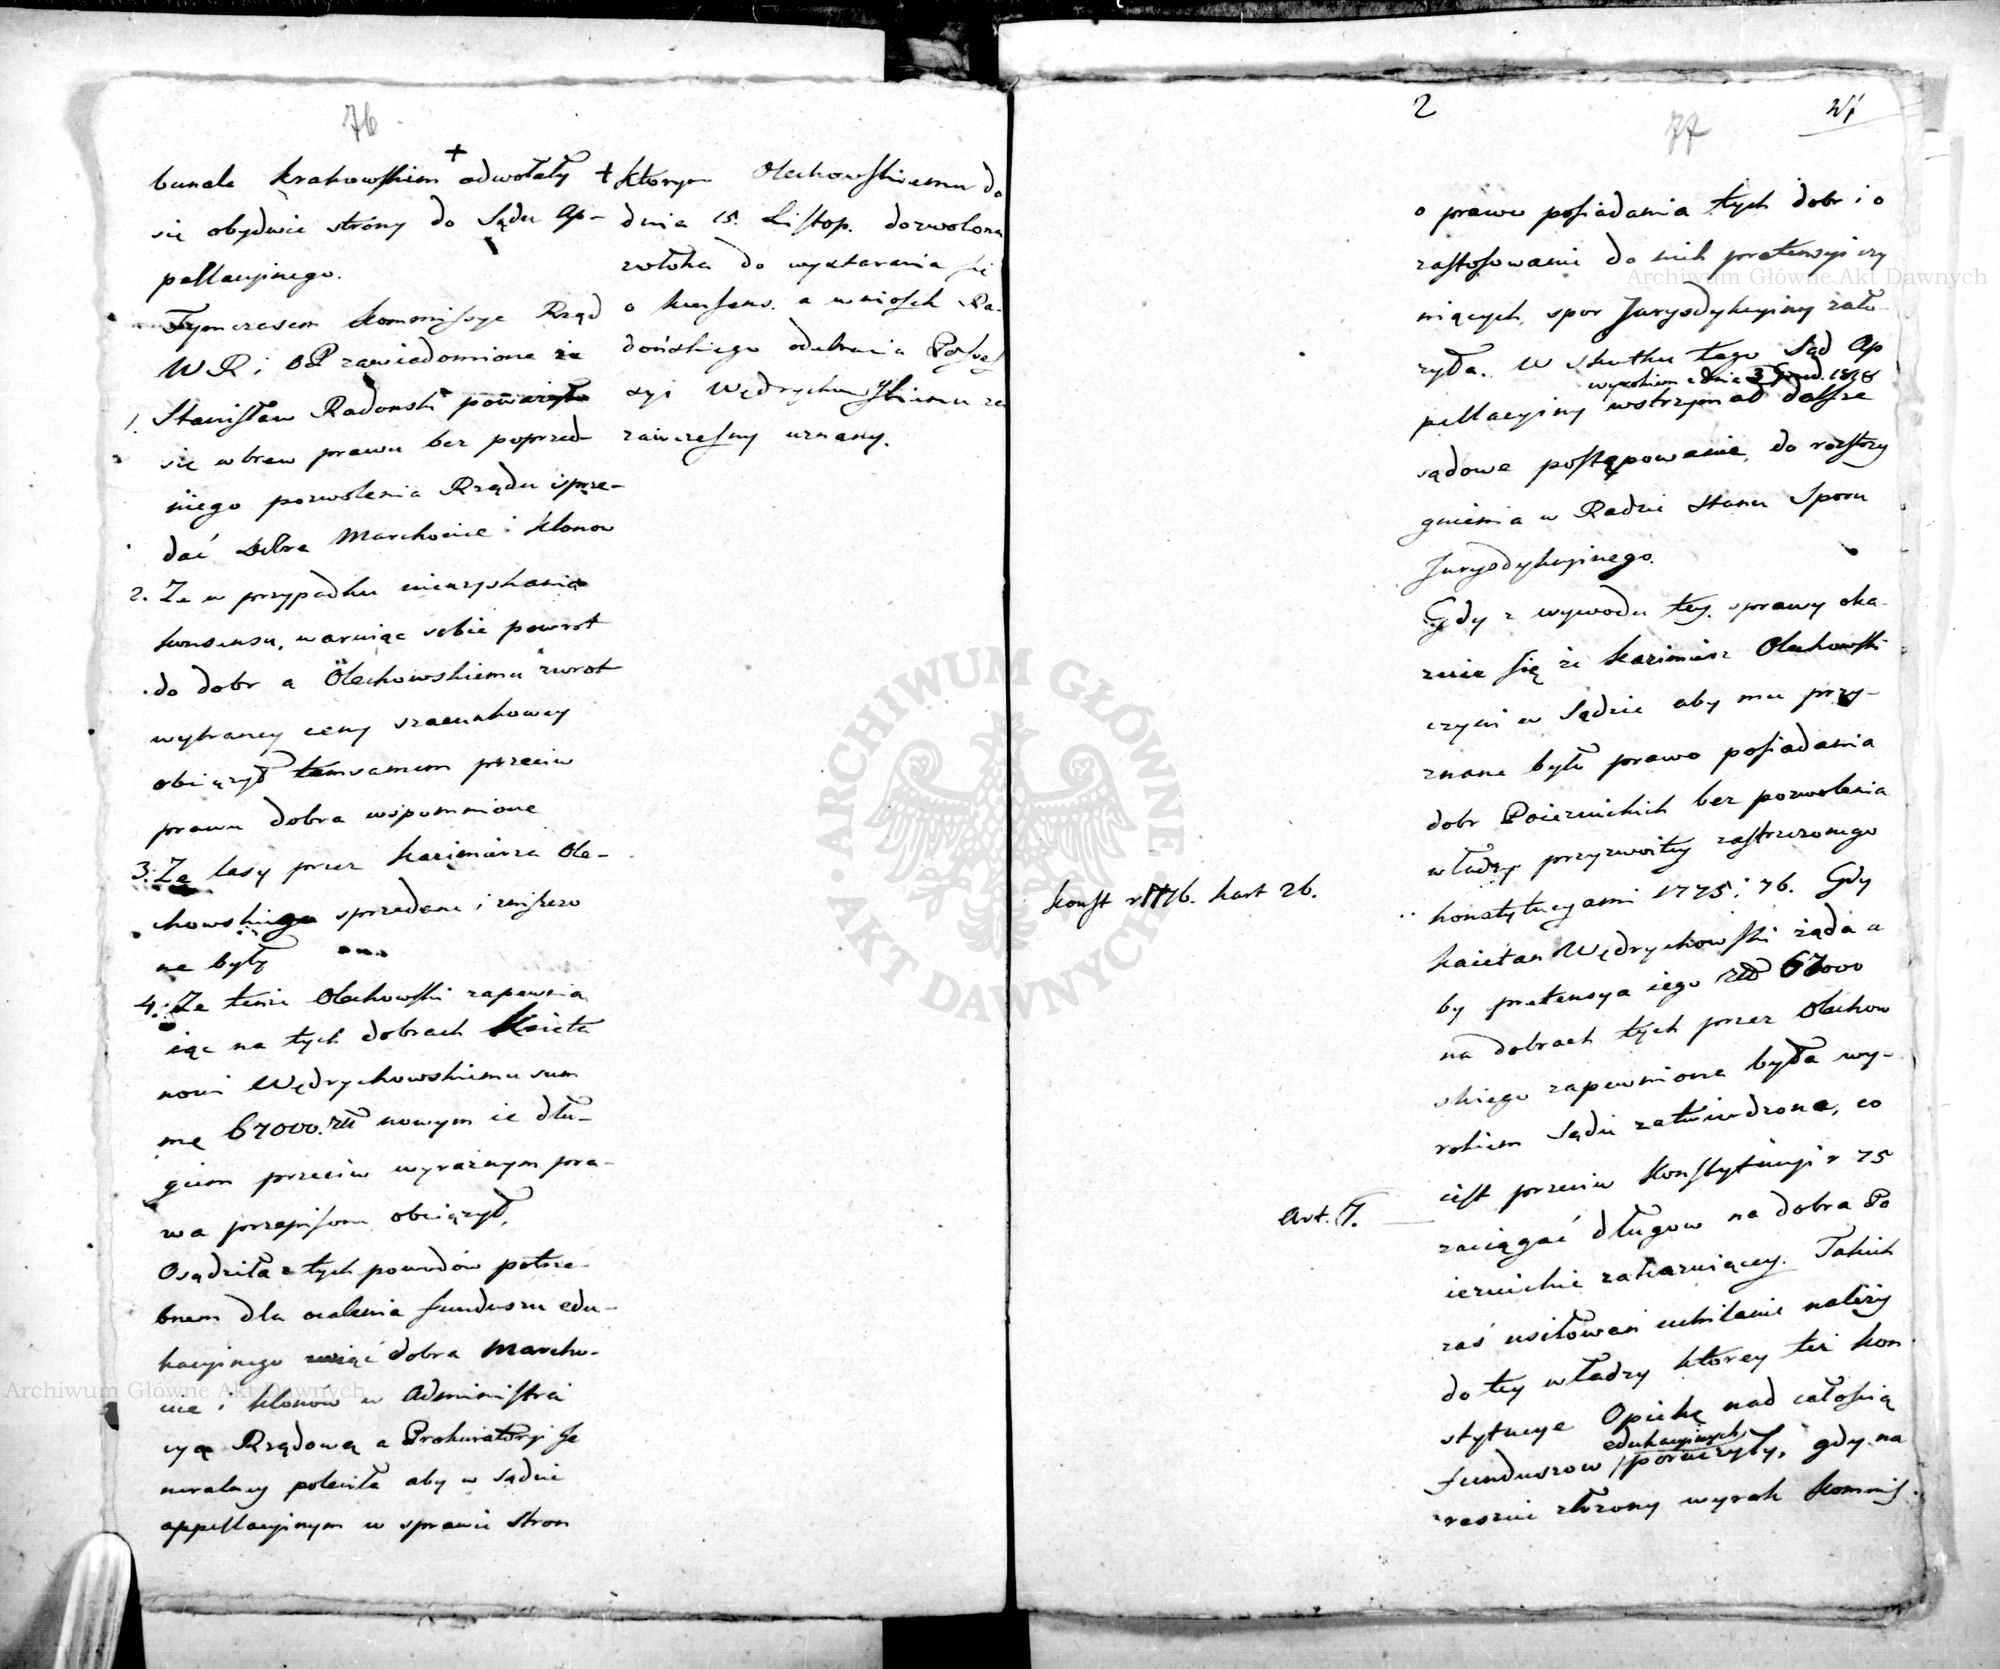 76
bunale Krakowskim + odwołały
się obydwie strony do Sądu Ap-
pellacyjnego.
Tymczasem Kommissya Rząd
W R i OP zawiadomiona że
1. Stanisław Radonski poważył
się wbrew prawu bez poprzed-
niego pozwolenia Rządu sprze-
dać Dobra Marchocice i Klonow
2. Że w przypadku nieuzyskania
konsensu, waruiąc sobie powrot
do dobr a Olechowskiemu zwrot
wybraney ceny szacunkowey
obciążył temsamem przeciw
prawu dobra wspomnione
3. Że lasy przez Kazimierza Ole-
chowskiego sprzedane i zniszczo
ne były
4. Że tenże Olechowski zapewnia
iąc na tych dobrach Kaieta
nowi Wędrychowskiemu sum
mę 67000 złł nowym ie dłu-
giem przeciw wyraznym pra-
wa przepisom obciążył,
Osądziła z tych powodów potrze-
bnem dla ocalenia funduszu edu-
kacyjnego wziąć dobra Marcho-
cice i Klonów w Administra
cyą Rządową a Prokuratoryi Je
neralney poleciła aby w Sądzie
appellacyjnym w sprawie stron
+ którym Olechowskiemu do
dnia 15. Listop. dozwolona
zwłoka do wystarania się
o konsens. a wniosek Ra-
dońskiego odebrania Posses
syi Wędrychowskiemu za
zawczesny uznany.
2
77
o prawo posiadania tych dobr i o
zastosowanie do nich pretensyi czy
niących, spor Jurysdykcyiny zało-
żyła. W skutku tego Sąd Ap
wyrokiem z dnia 3 Grud. 1818
pellacyiny wstrzymał dalsze
sądowe postępowanie, do rozstrzy
gnienia w Radzie Stanu Sporu
Jurysdykcyinego.
Gdy z wywodu tey sprawy oka-
zuie się że Kazimierz Olechowski
czyni w Sądzie aby mu przy-
znane było prawo posiadania
dobr Poiezuickich bez pozwolenia
władzy przyzwoitey zastrzezonego
Konst r 1776. kart 26.
konstytucyami 1775 i 76. Gdy
Kaietan Wędrychowski żąda a
by pretensya iego złł 67000
na dobrach tych przez Olechow
skiego zapewniona była wy-
rokiem Sądu zatwierdzona, co
iest przeciw Konstytucyi r 75
Art. 7.
zaciągać długow na dobra Po
iezuickie zakazuiącey. Takich
zaś usiłowań uchilanie należy
do tey władzy ktorey też kon
stytucye Opiekę nad całością
funduszow edukacyinych poruczyły, gdy na
reszcie złożony wyrok Kommis.